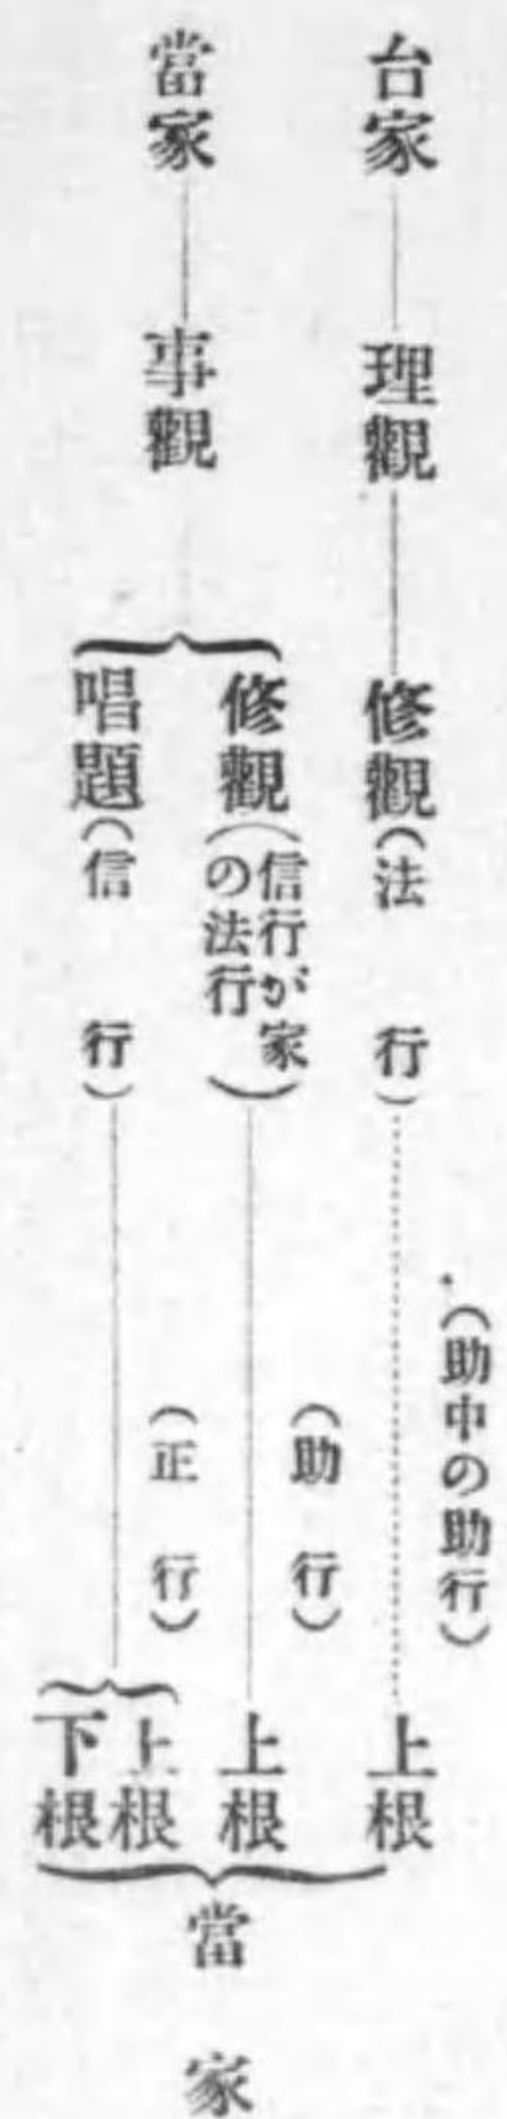 台家
理觀
修觀(法行)
(助中の助行)
上根
當家
事觀
修觀(信行が家の法行)
(助行)
上根
唱題(信行)
(正行)
上根
下根
當家